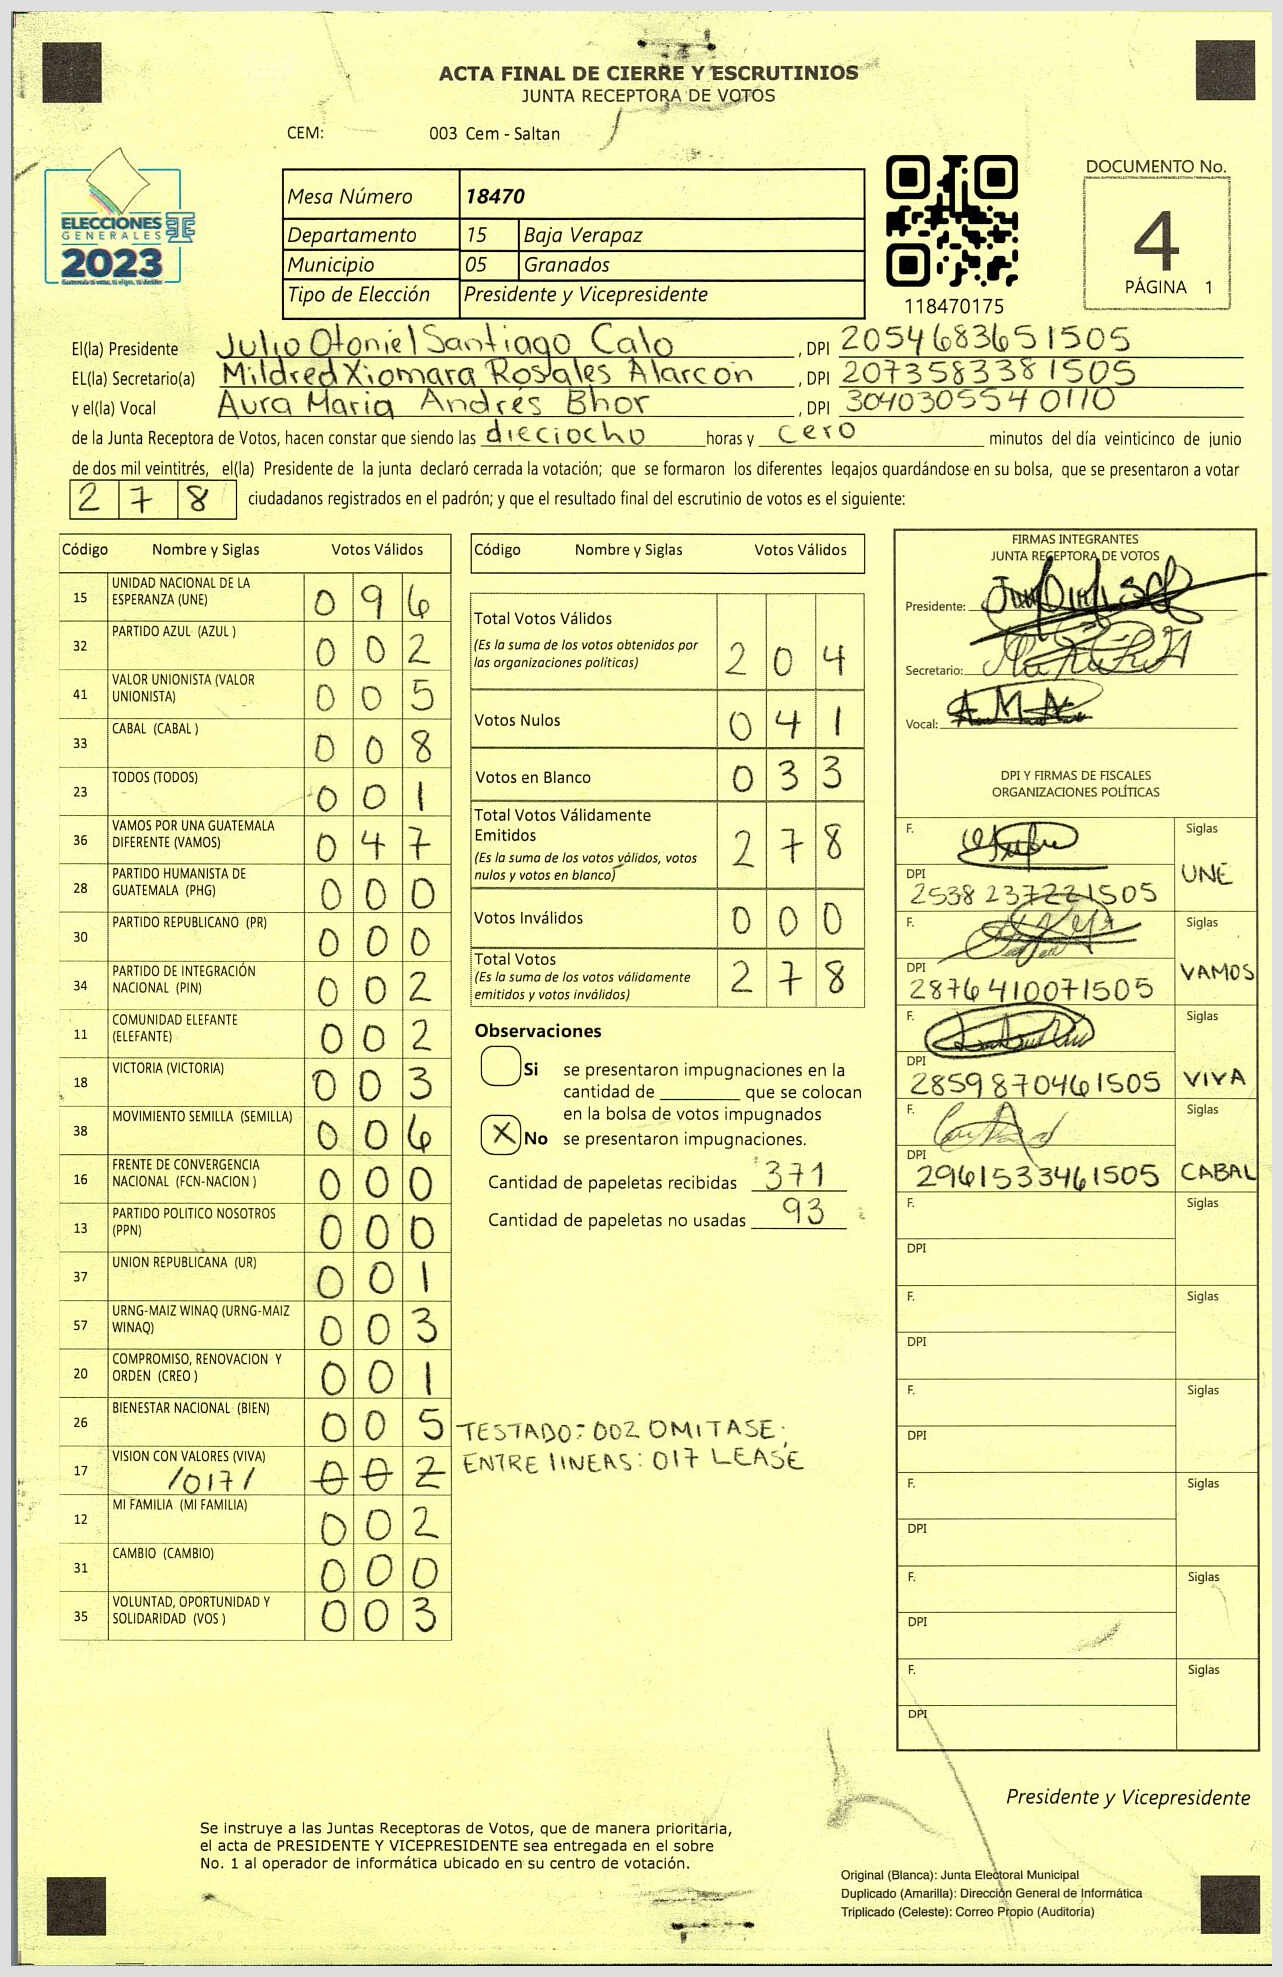 ACTA FINAL DE CIERRE Y ESCRUTINIOS
JUNTA RECEPTORA DE VOTOS
CEM: 003 Cem - Saltan
ELECCIONES
GENERALES
2023
Mesa Número 18470
Departamento 15 Baja Verapaz
Municipio 05 Granados
Tipo de Elección Presidente y Vicepresidente
118470175
DOCUMENTO No.
4
PÁGINA 1
El(la) Presidente Julio Otoniel Santiago Calo , DPI 2054683651505
EL(la) Secretario(a) Mildred Xiomara Rosales Alarcon , DPI 2073583381505
y el(la) Vocal Aura Maria Andrés Bhor , DPI 3040305540110
de la Junta Receptora de Votos, hacen constar que siendo las dieciocho horas y cero minutos del día veinticinco de junio
de dos mil veintitrés, el(la) Presidente de la junta declaró cerrada la votación; que se formaron los diferentes legajos guardándose en su bolsa, que se presentaron a votar
278 ciudadanos registrados en el padrón; y que el resultado final del escrutinio de votos es el siguiente:
Código Nombre y Siglas Votos Válidos
15 UNIDAD NACIONAL DE LA ESPERANZA (UNE) 096
32 PARTIDO AZUL (AZUL ) 002
41 VALOR UNIONISTA (VALOR UNIONISTA) 005
33 CABAL (CABAL ) 008
23 TODOS (TODOS) 001
36 VAMOS POR UNA GUATEMALA DIFERENTE (VAMOS) 047
28 PARTIDO HUMANISTA DE GUATEMALA (PHG) 000
30 PARTIDO REPUBLICANO (PR) 000
34 PARTIDO DE INTEGRACIÓN NACIONAL (PIN) 002
11 COMUNIDAD ELEFANTE (ELEFANTE) 002
18 VICTORIA (VICTORIA) 003
38 MOVIMIENTO SEMILLA (SEMILLA) 006
16 FRENTE DE CONVERGENCIA NACIONAL (FCN-NACION ) 000
13 PARTIDO POLITICO NOSOTROS (PPN) 000
37 UNION REPUBLICANA (UR) 001
57 URNG-MAIZ WINAQ (URNG-MAIZ WINAQ) 003
20 COMPROMISO, RENOVACION Y ORDEN (CREO ) 001
26 BIENESTAR NACIONAL (BIEN) 005
17 VISION CON VALORES (VIVA) /017/ 002
12 MI FAMILIA (MI FAMILIA) 002
31 CAMBIO (CAMBIO) 000
35 VOLUNTAD, OPORTUNIDAD Y SOLIDARIDAD (VOS ) 003
Código Nombre y Siglas Votos Válidos
Total Votos Válidos 204
(Es la suma de los votos obtenidos por
las organizaciones políticas)
Votos Nulos 041
Votos en Blanco 033
Total Votos Válidamente
Emitidos 278
(Es la suma de los votos válidos, votos
nulos y votos en blanco)
Votos Inválidos 000
Total Votos 278
(Es la suma de los votos válidamente
emitidos y votos inválidos)
Observaciones
Si se presentaron impugnaciones en la
cantidad de ________ que se colocan
en la bolsa de votos impugnados
X No se presentaron impugnaciones.
Cantidad de papeletas recibidas 371
Cantidad de papeletas no usadas 93
TESTADO: 002 OMITASE;
ENTRE LINEAS: 017 LEASE
FIRMAS INTEGRANTES
JUNTA RECEPTORA DE VOTOS
Presidente:
Secretario:
Vocal:
DPI Y FIRMAS DE FISCALES
ORGANIZACIONES POLÍTICAS
F. Siglas
DPI 2538237221505 UNE
F. Siglas
DPI 2876410071505 VAMOS
F. Siglas
DPI 2859870461505 VIVA
F. Siglas
DPI 2961533461505 CABAL
F. Siglas
DPI
F. Siglas
DPI
F. Siglas
DPI
F. Siglas
DPI
F. Siglas
DPI
F. Siglas
DPI
Presidente y Vicepresidente
Se instruye a las Juntas Receptoras de Votos, que de manera prioritaria,
el acta de PRESIDENTE Y VICEPRESIDENTE sea entregada en el sobre
No. 1 al operador de informática ubicado en su centro de votación.
Original (Blanca): Junta Electoral Municipal
Duplicado (Amarilla): Dirección General de Informática
Triplicado (Celeste): Correo Propio (Auditoría)